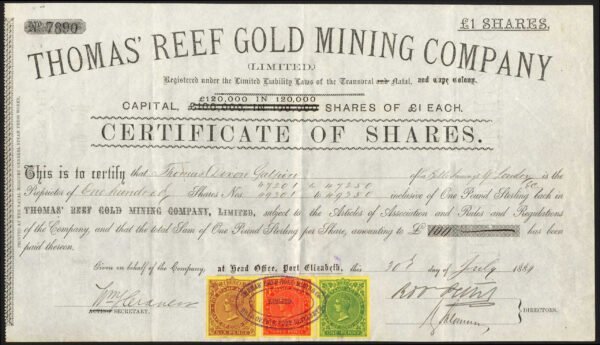 No. 7890
£1 SHARES.
THOMAS' REEF GOLD MINING COMPANY
(LIMITED.)
Registered under the Limited Liability Laws of the Transvaal and Natal, and Cape Colony.
£120,000 IN 120,000
CAPITAL, £100,000, IN 100,000 SHARES OF £1 EACH.
CERTIFICATE OF SHARES.
This is to certify that Thomas of London EC is the
Proprietor of One hundred Shares Nos 47201 to 47250 49201 to 49250 inclusive of One Pound Sterling each in
THOMAS' REEF GOLD MINING COMPANY, LIMITED, subject to the Articles of Association and Rules and Regulations
of the Company, and that the total Sum of One Pound Sterling per Share, amounting to £ 100 has been
paid thereon.
Given on behalf of the Company, at Head Office, Port Elizabeth, this 30th day of July 1889
ACTING SECRETARY.
DIRECTORS.
SIX PENCE
ONE PENNY